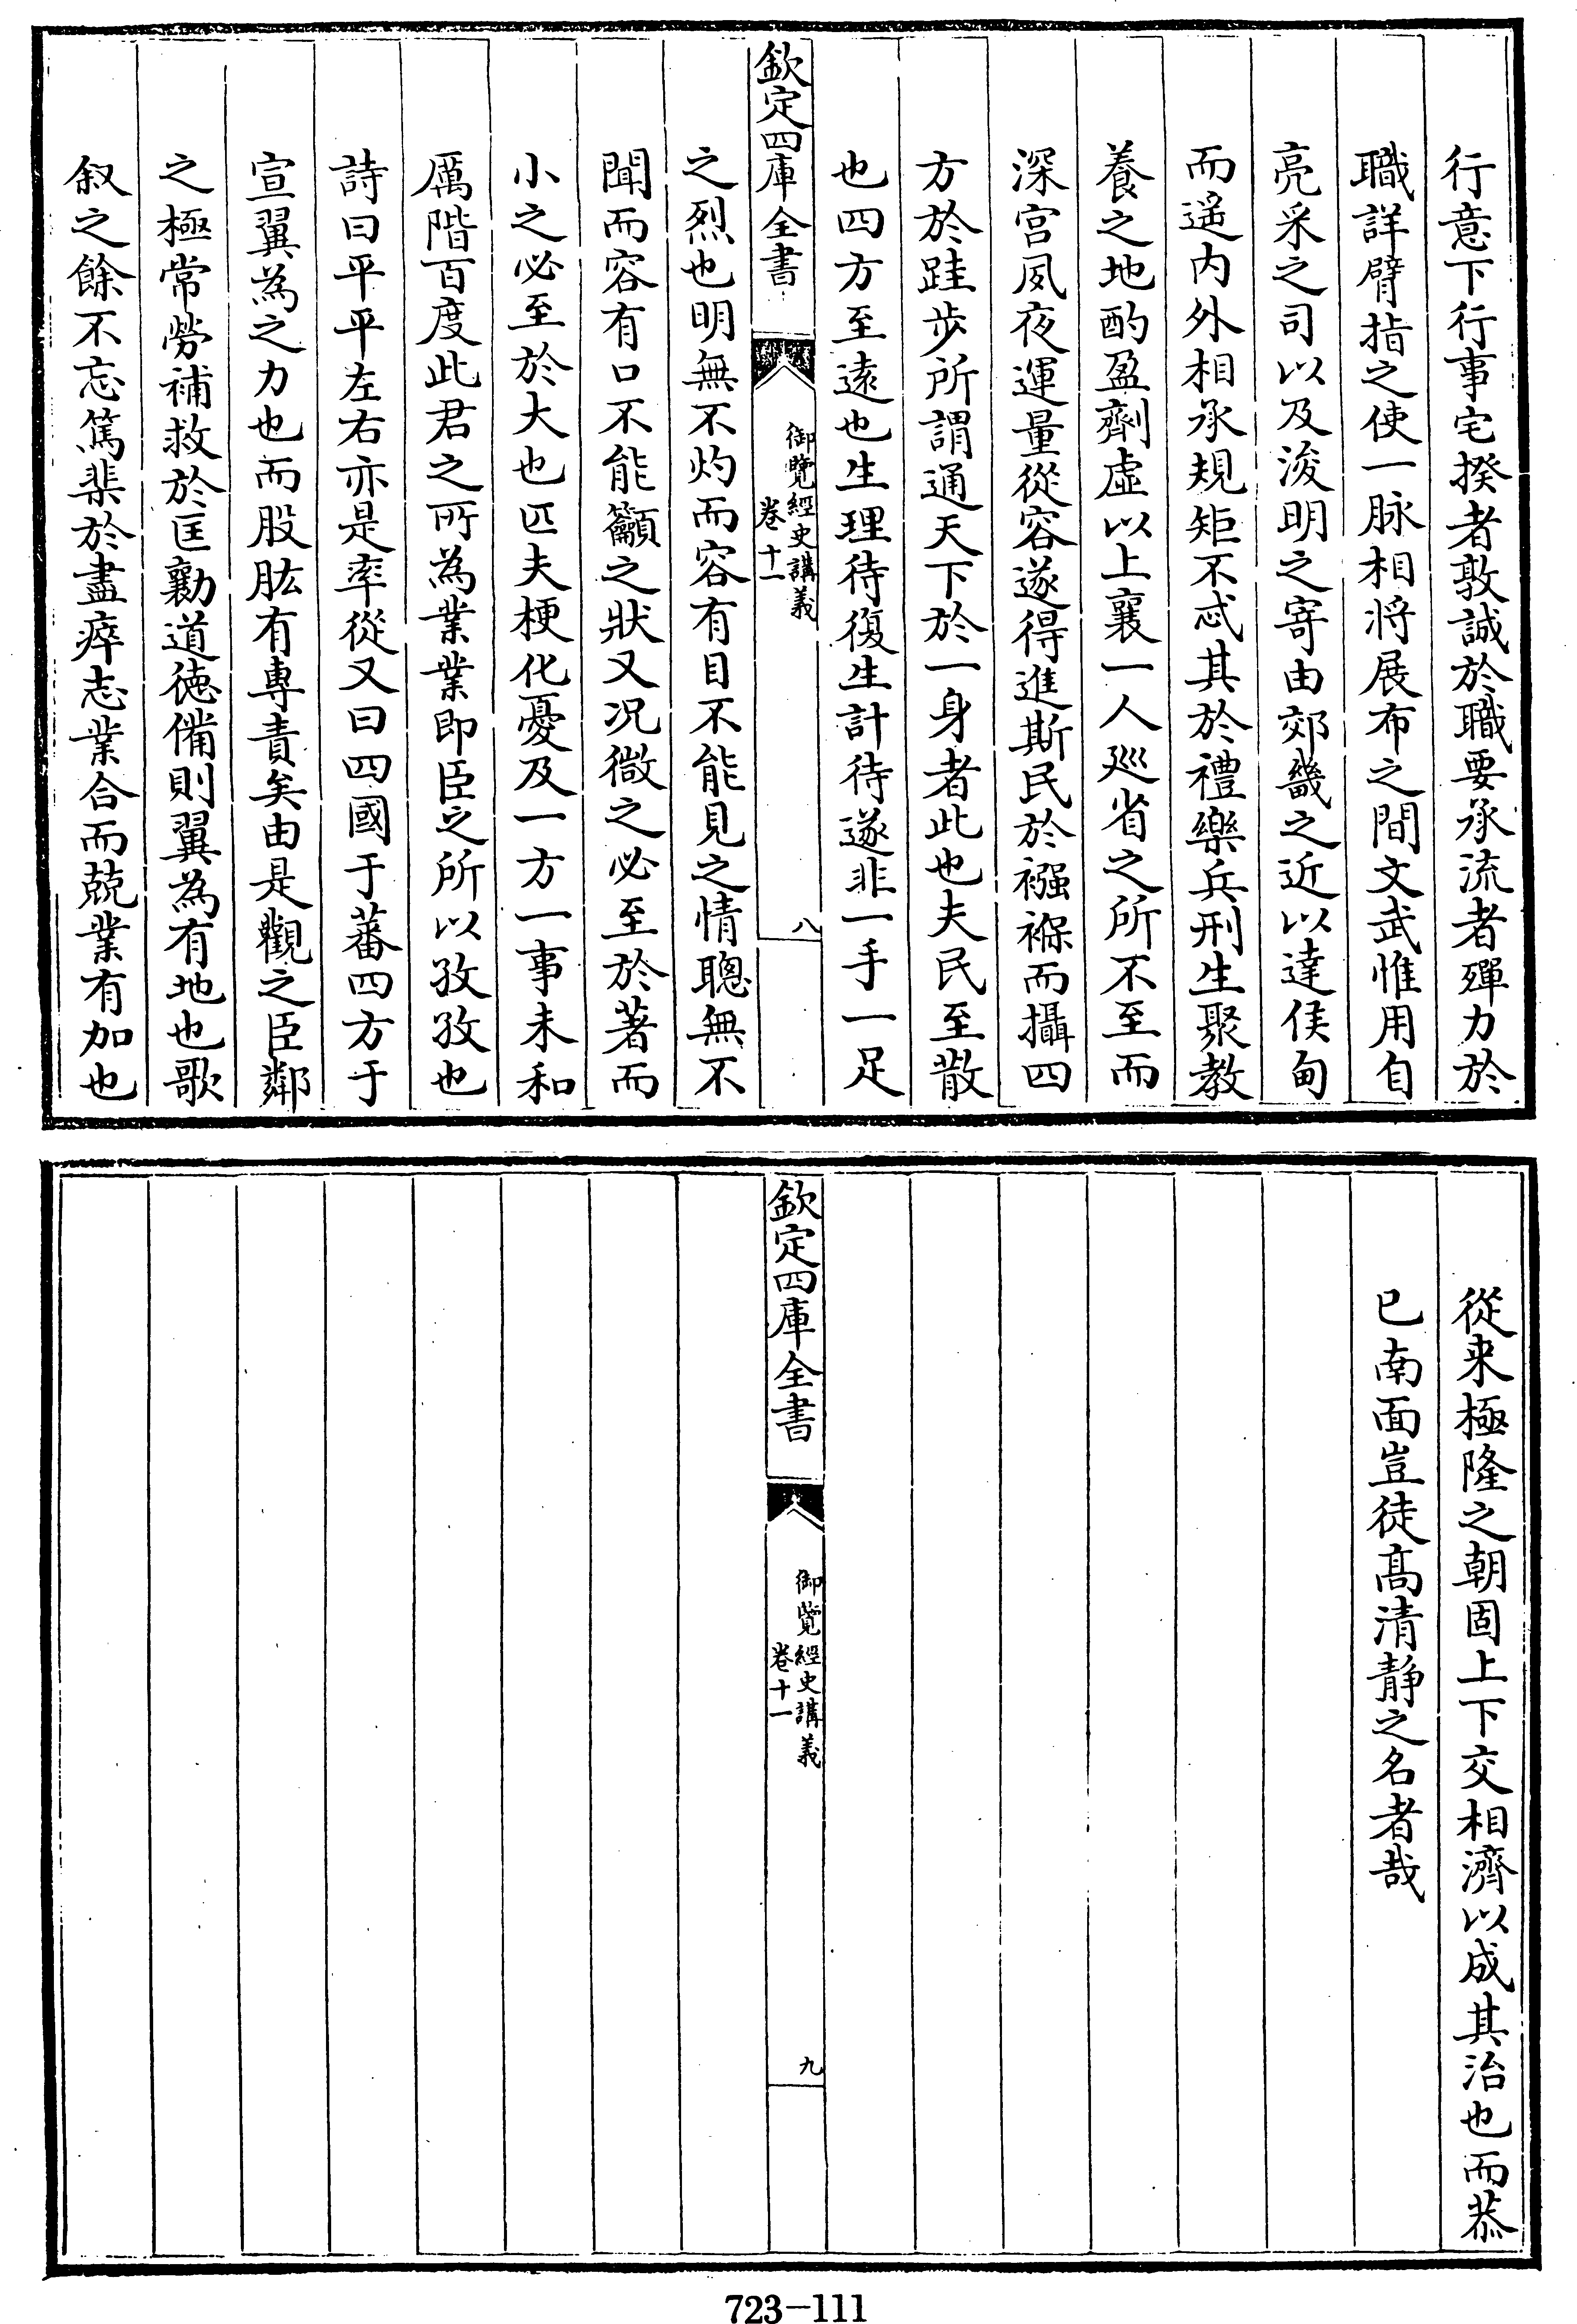 行意下行事宅揆者敦誠於職要承流者殫力於
職詳臂指之使一脉相將展布之間文武惟用自
亮采之司以及浚明之寄由郊畿之近以達侯甸
而遥内外相承規矩不忒其於禮樂兵刑生聚教
養之地酌盈劑虚以上襄一人巡省之所不至而
深宫夙夜運量從容遂得進斯民於襁褓而攝四
方於跬步所謂通天下於一身者此也夫民至散
也四方至遠也生理待復生計待遂非一手一足
欽定四庫全書
御覽經史講義
卷十一
八
之烈也明無不灼而容有目不能見之情聰無不
聞而容有口不能籲之狀又况微之必至於著而
小之必至於大也匹夫梗化憂及一方一事未和
厲階百度此君之所為業業即臣之所以孜孜也
詩曰平平左右亦是率從又曰四國于蕃四方于
宣翼為之力也而股肱有專責矣由是觀之臣鄰
之極常勞補救於匡勷道徳備則翼為有地也歌
叙之餘不忘篤棐於盡瘁志業合而兢業有加也
從来極隆之朝固上下交相濟以成其治也而恭
已南面豈徒髙清静之名者哉
欽定四庫全書
御覽經史講義
卷十一
九
723-111